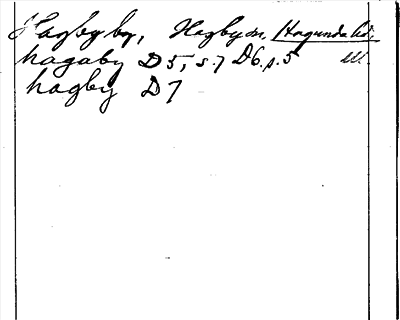 Hagby by, Hagby sn, Hagunda hd,
hagaby D 5, s. 7 D6. s. 5 Ul.
hagby D 7